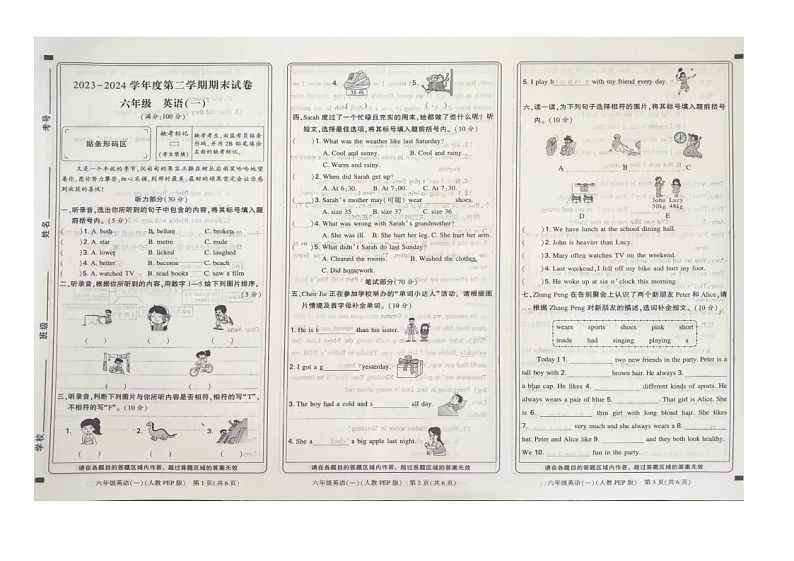 考号
姓名
班级
学校
2023-2024 学年度第二学期期末试卷
六年级 英语(一)
(满分:100 分)
贴条形码区
缺考标记
(考生禁填)
缺考考生,由监考员贴条
形码,并用 2B 铅笔填涂
左面的缺考标记。
又是一个丰收的季节,沉甸甸的果实点缀在树丛后面笑吟吟地望
着你,愿你努力攀登,细心采摘,到那时最美、最好的硕果肯定会让你感
到收获的喜悦!
听力部分(30 分)
一、听录音,选出你所听到的句子中包含的内容,将其标号填入题
前括号内。(5 分)
( )1. A. both B. before C. broken
( )2. A. star B. metre C. mule
( )3. A. lower B. licked C. laughed
( )4. A. better B. become C. beach
( )5. A. watched TV B. read books C. saw a film
二、听录音,根据你所听到的内容,用数字 1—5 给下列图片排序。
(5 分)
三、听录音,判断下列图片与你所听内容是否相符,相符的写“T”,
不相符的写“F”。(10 分)
1. 2. 3.
( ) ( ) ( )
请在各题目的答题区域内作答,超过答题区域的答案无效
六年级英语(一)(人教 PEP 版) 第 1 页(共 6 页)
4. 5.
( ) ( )
四、Sarah 度过了一个忙碌且充实的周末,她都做了些什么呢?听
短文,选择最佳选项,将其标号填入题前括号内。(10 分)
( )1. What was the weather like last Saturday?
A. Cool and sunny. B. Cool and rainy.
C. Warm and rainy.
( )2. When did Sarah get up?
A. At 6:30. B. At 7:00. C. At 7:30.
( )3. Sarah's mother may(可能) wear ______ shoes.
A. size 35 B. size 37 C. size 36
( )4. What was wrong with Sarah's grandmother?
A. She was ill. B. She hurt her leg. C. She hurt her arm.
( )5. What didn't Sarah do last Sunday?
A. Cleaned the rooms. B. Washed the clothes.
C. Did homework.
笔试部分(70 分)
五、Chen Jie 正在参加学校举办的“单词小达人”活动。请根据图
片情境及首字母补全单词。(10 分)
1. He is t______ than his sister.
2. I got a g______ yesterday.
3. The boy had a cold and s______ all day.
4. She a______ a big apple last night.
请在各题目的答题区域内作答,超过答题区域的答案无效
六年级英语(一)(人教 PEP 版) 第 2 页(共 6 页)
5. I play b______ with my friend every day.
六、读一读,为下列句子选择相符的图片,将其标号填入题前括号
内。(10 分)
A B C
John Lucy
50kg 48kg
D E
( )1. We have lunch at the school dining hall.
( )2. John is heavier than Lucy.
( )3. Mary often watches TV on the weekend.
( )4. Last weekend, I fell off my bike and hurt my foot.
( )5. He woke up at six o'clock this morning.
七、Zhang Peng 在告别聚会上认识了两个新朋友 Peter 和 Alice,请
根据 Zhang Peng 对新朋友的描述,选词补全短文。(10 分)
wears sports shoes pink short
made had singing playing a
Today I 1.______ two new friends in the party. Peter is a
tall boy with 2.______ brown hair. He always 3.______
a blue cap. He likes 4.______ different kinds of sports. He
always wears a pair of blue 5.______. That girl is Alice. She
is 6.______ thin girl with long blond hair. She likes
7.______ very much and she always wears a 8.______
hat. Peter and Alice like 9.______ and they both look healthy.
We 10.______ fun in the party.
请在各题目的答题区域内作答,超过答题区域的答案无效
六年级英语(一)(人教 PEP 版) 第 3 页(共 6 页)